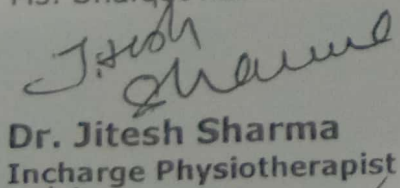 Jitesh
Sharma
Dr. Jitesh Sharma
Incharge Physiotherapist